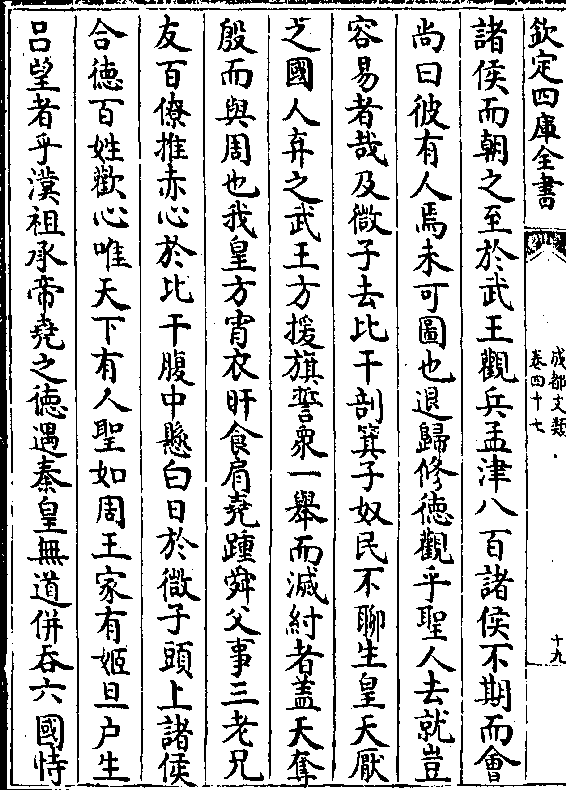 欽定四庫全書
成都文類
卷四十七
十九
諸侯而朝之至於武王觀兵孟津八百諸侯不期而會
尚曰彼有人焉未可圖也退歸修徳觀乎聖人去就豈
容易者哉及微子去比干剖箕子奴民不聊生皇天厭
之國人弃之武王方援旗誓衆一舉而滅紂者盖天奪
殷而與周也我皇方宵衣旰食肩堯踵舜父事三老兄
友百僚推赤心於比干腹中懸白日於微子頭上諸侯
合徳百姓歡心唯天下有人聖如周王家有姬旦户生
吕望者乎漢祖承帝堯之徳遇秦皇無道併吞六國恃